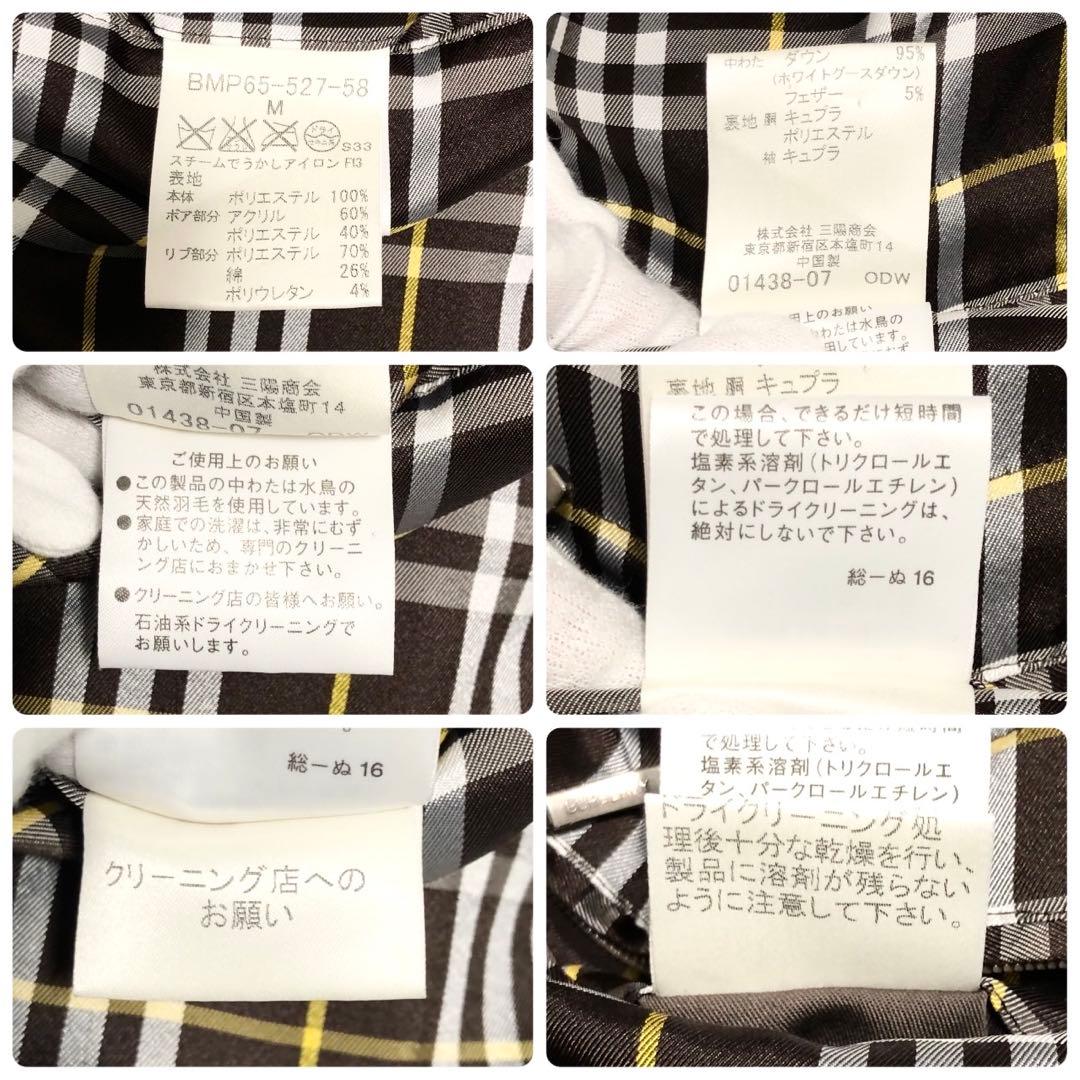 BMP65-527-58
M
ドライ
セキユ系
S33
スチームでうかしアイロン F13
表地
本体 ポリエステル 100%
ボア部分 アクリル 60%
ポリエステル 40%
リブ部分 ポリエステル 70%
綿 26%
ポリウレタン 4%
中わた ダウン 95%
(ホワイトグースダウン)
フェザー 5%
裏地 胴 キュプラ
ポリエステル
袖 キュプラ
株式会社 三陽商会
東京都新宿区本塩町14
中国製
01438-07 ODW
用上のお願い
中わたは水鳥の
用しています。
株式会社 三陽商会
東京都新宿区本塩町14
中国製
01438-07 ODW
ご使用上のお願い
●この製品の中わたは水鳥の
天然羽毛を使用しています。
●家庭での洗濯は、非常にむず
かしいため、専門のクリーニ
ング店におまかせ下さい。
●クリーニング店の皆様へお願い。
石油系ドライクリーニングで
お願いします。
裏地 胴 キュプラ
この場合、できるだけ短時間
で処理して下さい。
塩素系溶剤(トリクロールエ
タン、パークロールエチレン)
によるドライクリーニングは、
絶対にしないで下さい。
総ーぬ 16
総ーぬ 16
クリーニング店への
お願い
で処理して下さい。
塩素系溶剤(トリクロールエ
タン、パークロールエチレン)
ドライクリーニング処
理後十分な乾燥を行い、
製品に溶剤が残らない
ように注意して下さい。